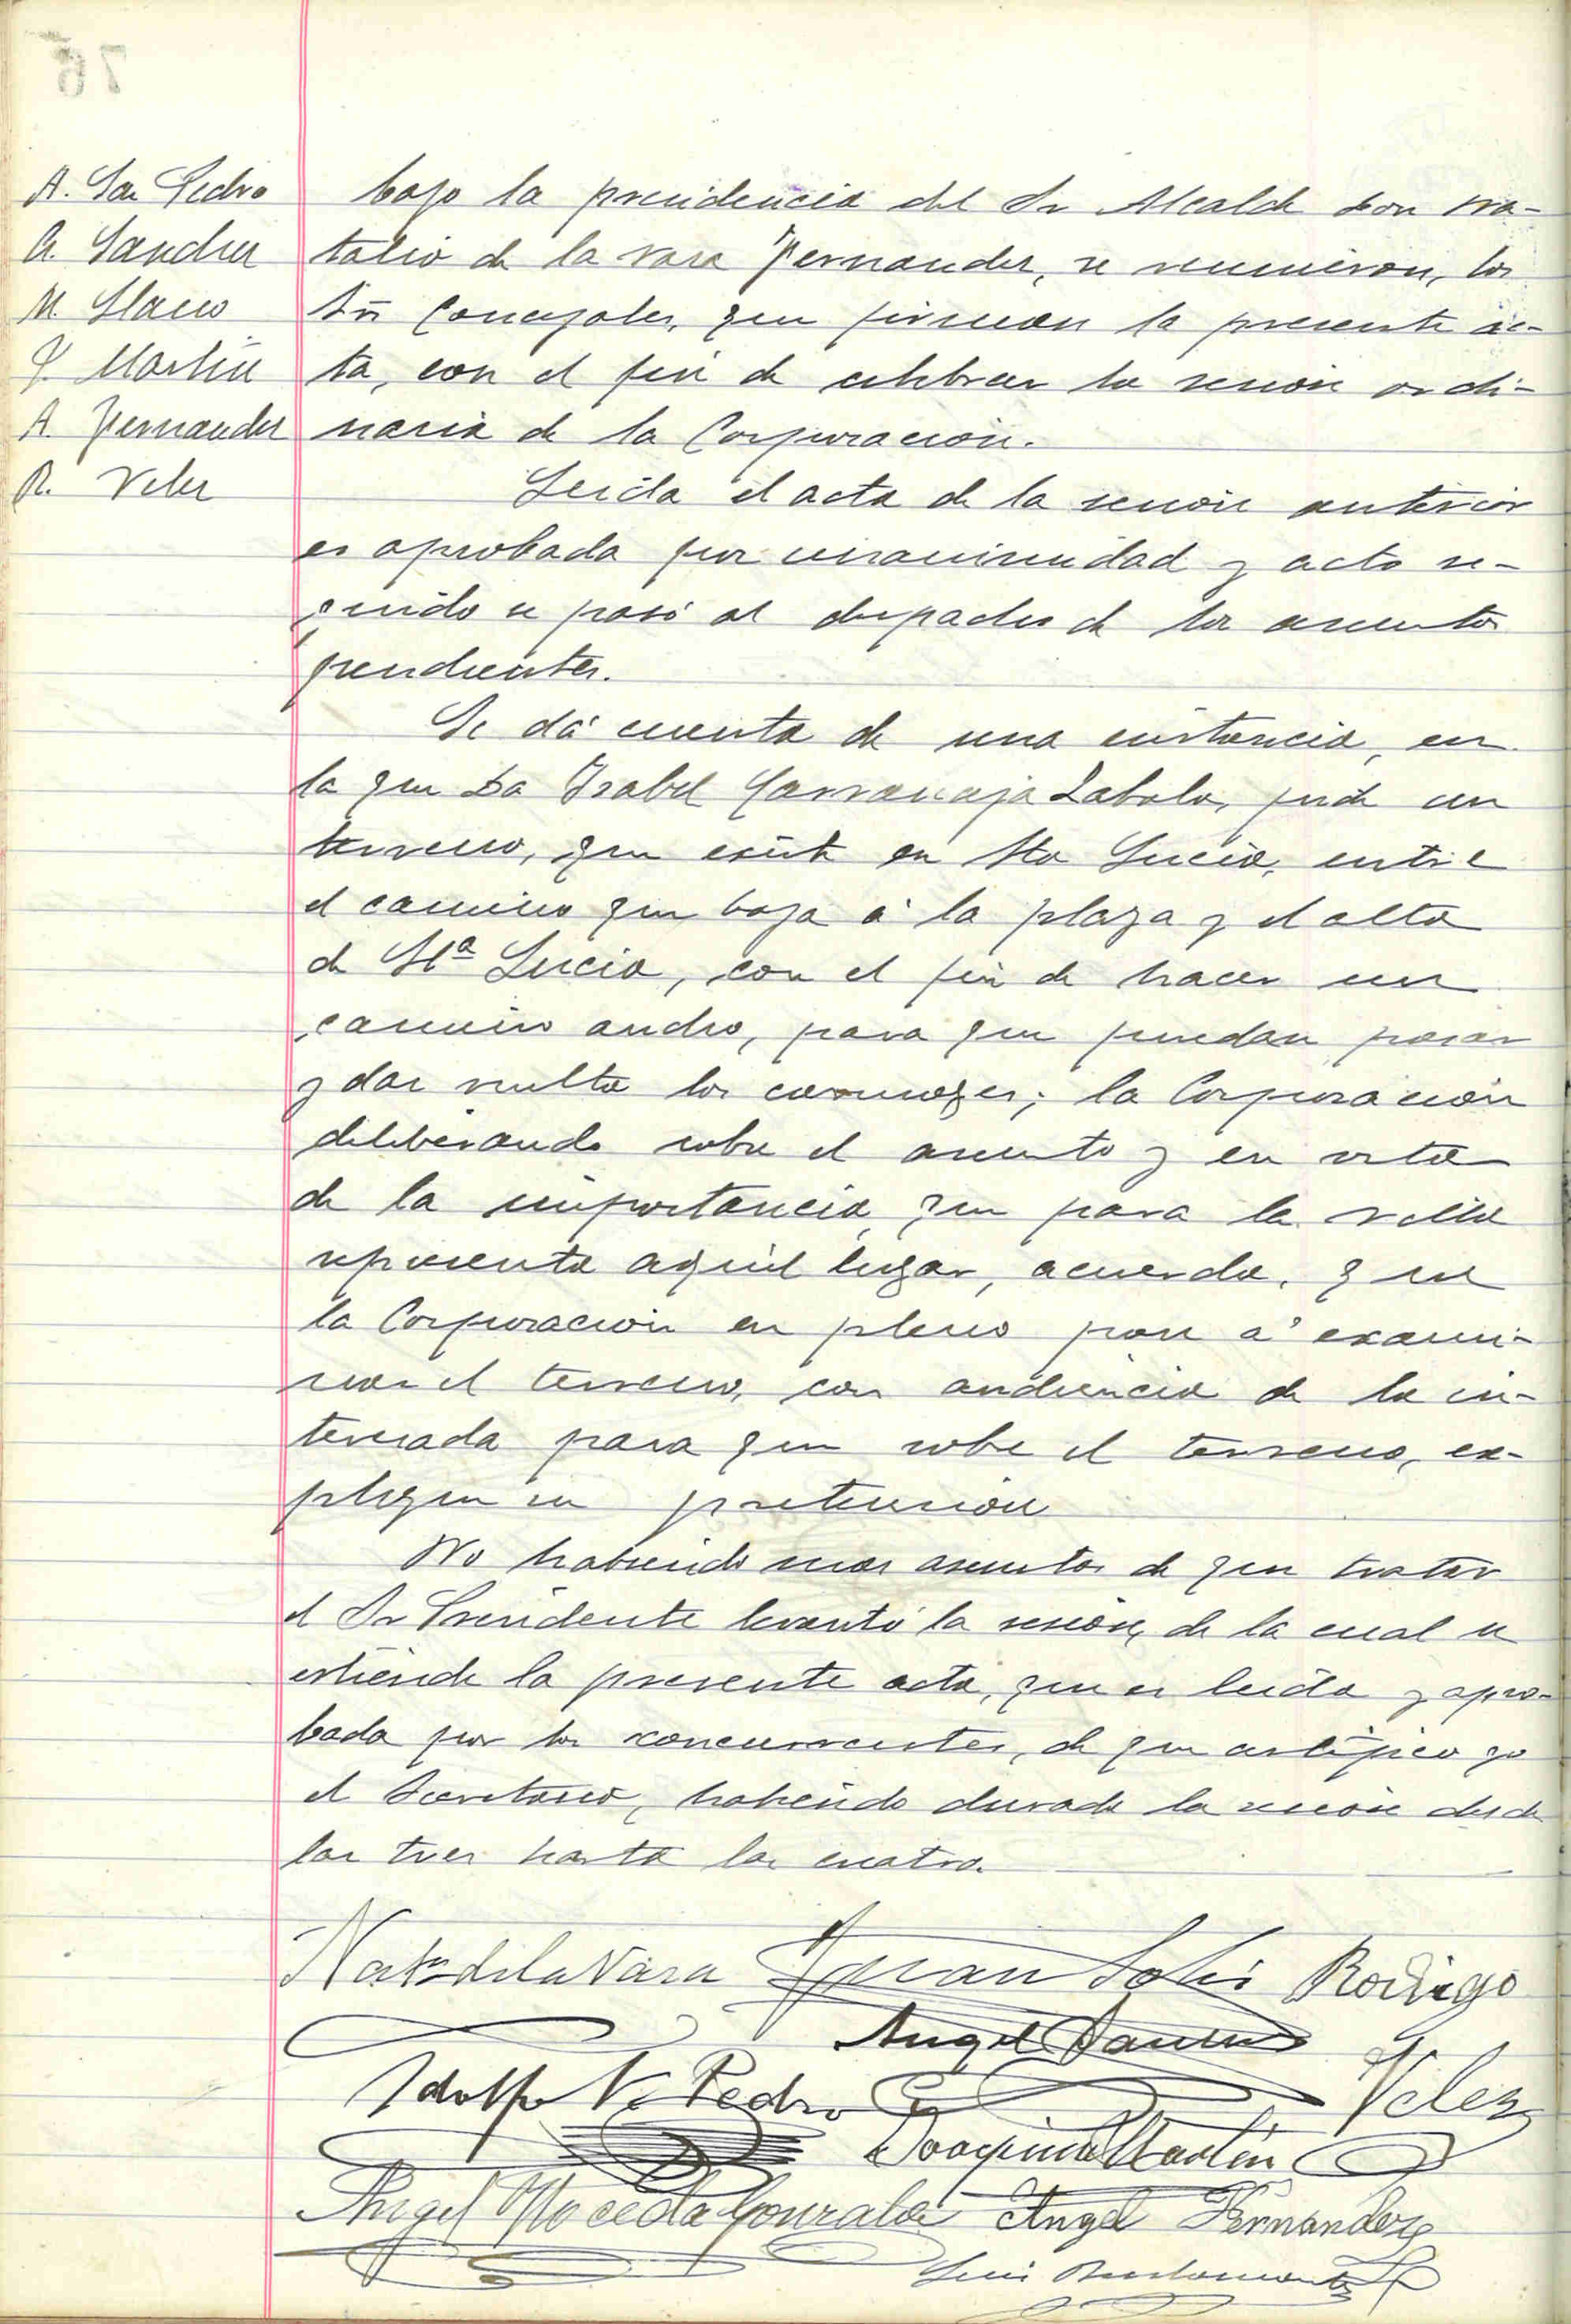 A. San Pedro
A. Sanchez
M. Llano
J. Martin
A. Fernandez
R. Velez
bajo la presidencia del Sr Alcalde Don Na-
talio de la Vara Fernandez, se reunieron, los
Sres Concejales, que firman la presente ac-
ta, con el fin de celebrar la sesión ordi-
naria de la Corporacion.
Leida el acta de la sesión anterior
es aprobada por unanimidad y acto se-
guido se pasó al despacho de los asuntos
pendientes.
Se dá cuenta de una instancia, en
la que Da Isabel Zabala, pide un
terreno, que existe en Sta Lucia, entre
el camino que baja á la plaza y el alto
de Stª Lucia, con el fin de hacer un
camino ancho, para que puedan pasar
y dar vuelta los carruages; la Corporación
deliberando sobre el asunto y en vista
de la importancia que para la villa
representa aquel lugar, acuerda, que
la Corporacion en pleno pase á exami-
nar el terreno, con audiencia de la in-
teresada para que sobre el terreno, ex-
plique su pretension
No habiendo mas asuntos de que tratar
el Sr Presidente levantó la sesión, de la cual se
extiende la presente acta, que es leida y apro-
bada por los concurrentes, de que certifico yo
el Secretario, habiendo durado la sesión desde
las tres hasta las cuatro.
Nat. de la Vara Juan Solis Rodrigo
Angel Velez
Adolfo S. Pedro
Joaquin Martin
Angel Noceda Gonzalez Angel Fernandez
Luis Bustamante